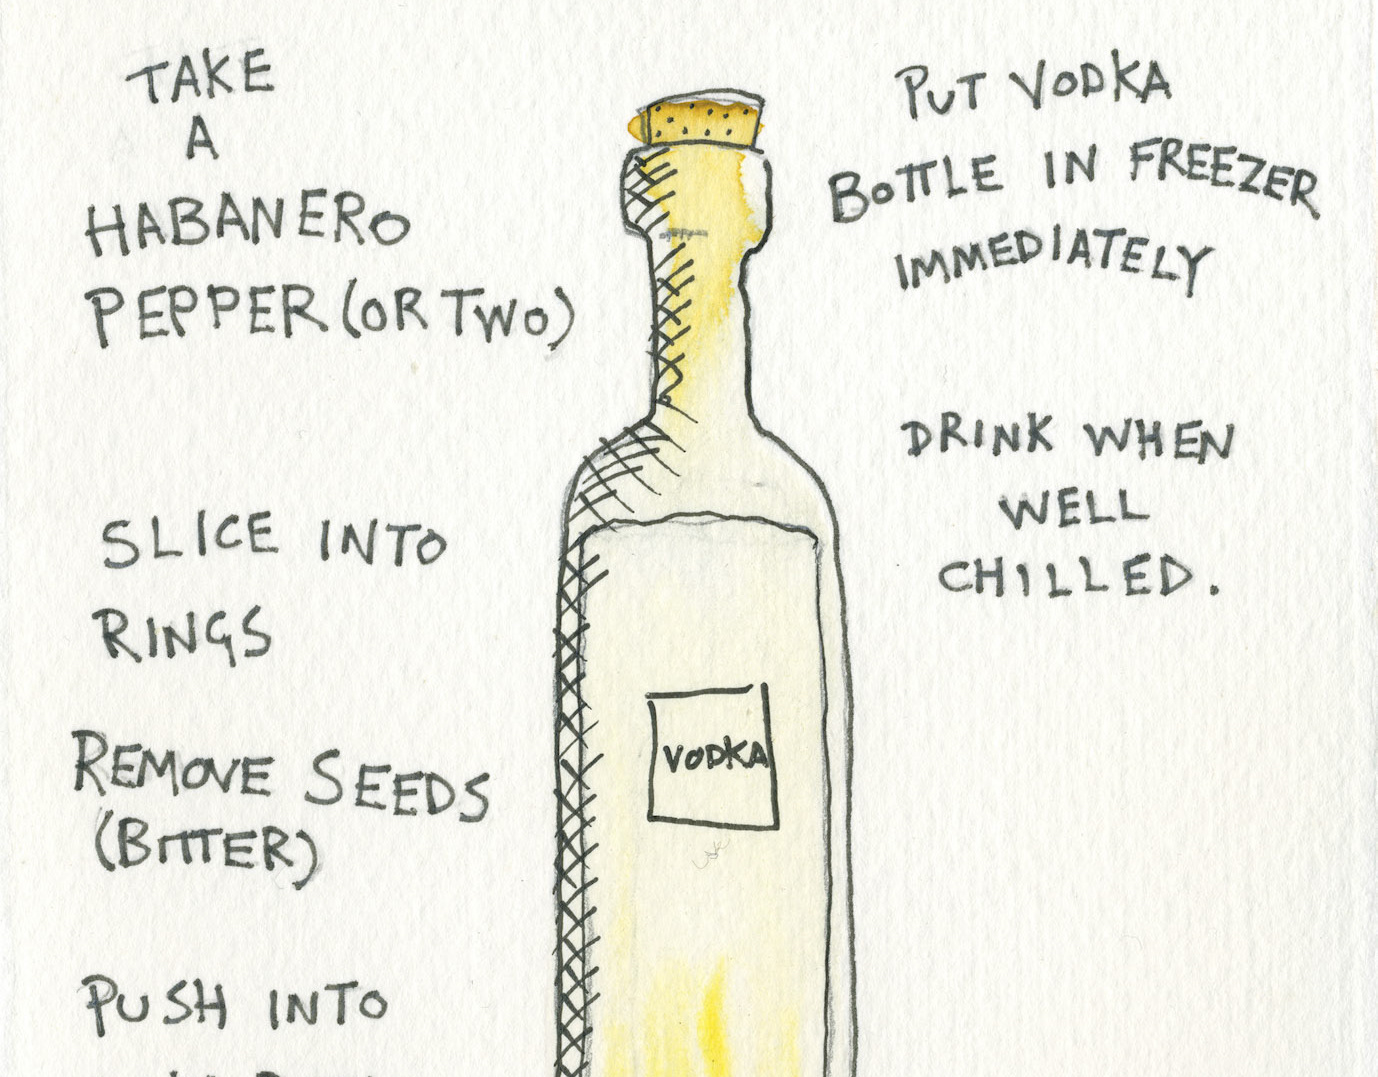 TAKE
A
HABANERO
PEPPER (OR TWO)
SLICE INTO
RINGS
REMOVE SEEDS
(BITTER)
PUSH INTO
VODKA
PUT VODKA
BOTTLE IN FREEZER
IMMEDIATELY
DRINK WHEN
WELL
CHILLED.